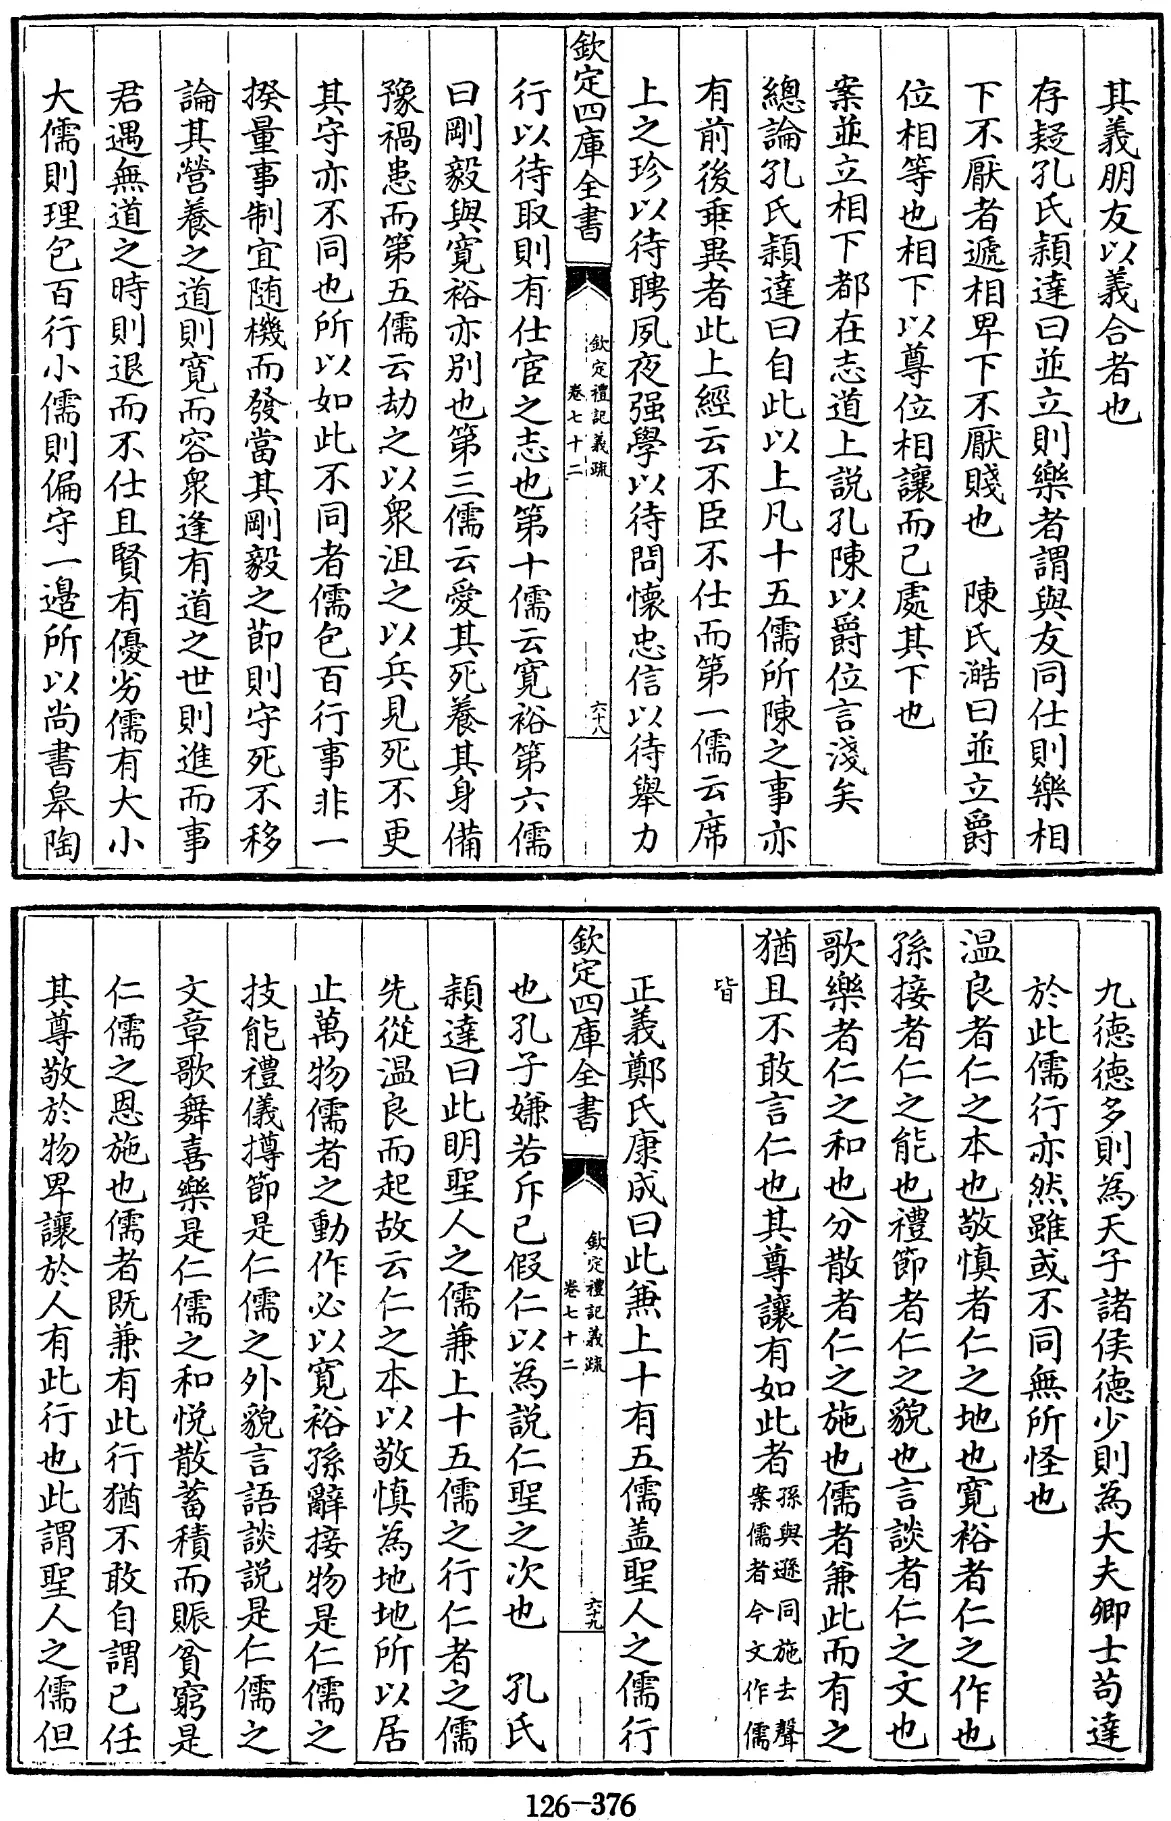 其義朋友以義合者也
存疑孔氏穎達曰並立則樂者謂與友同仕則樂相
下不厭者遞相卑下不厭賤也　陳氏澔曰並立爵
位相等也相下以尊位相讓而己處其下也
案並立相下都在志道上説孔陳以爵位言淺矣
總論孔氏穎達曰自此以上凡十五儒所陳之事亦
有前後乖異者此上經云不臣不仕而第一儒云席
上之珍以待聘夙夜强學以待問懷忠信以待舉力
欽定四庫全書
欽定禮記義疏
卷七十二
六十八
行以待取則有仕宦之志也第十儒云寛裕第六儒
曰剛毅與寛裕亦别也第三儒云愛其死養其身備
豫禍患而第五儒云劫之以衆沮之以兵見死不更
其守亦不同也所以如此不同者儒包百行事非一
揆量事制宜随機而發當其剛毅之節則守死不移
論其營養之道則寛而容衆逢有道之世則進而事
君遇無道之時則退而不仕且賢有優劣儒有大小
大儒則理包百行小儒則偏守一邉所以尚書皋陶
九德德多則為天子諸侯德少則為大夫卿士苟達
於此儒行亦然雖或不同無所怪也
温良者仁之本也敬慎者仁之地也寛裕者仁之作也
孫接者仁之能也禮節者仁之貌也言談者仁之文也
歌樂者仁之和也分散者仁之施也儒者兼此而有之
猶且不敢言仁也其尊讓有如此者孫與遜同施去聲
案儒者今文作儒
皆
正義鄭氏康成曰此兼上十有五儒盖聖人之儒行
欽定四庫全書
欽定禮記義疏
卷七十二
六十九
也孔子嫌若斥已假仁以為説仁聖之次也　孔氏
穎達曰此明聖人之儒兼上十五儒之行仁者之儒
先從温良而起故云仁之本以敬慎為地地所以居
止萬物儒者之動作必以寛裕孫辭接物是仁儒之
技能禮儀撙節是仁儒之外貌言語談説是仁儒之
文章歌舞喜樂是仁儒之和悦散蓄積而賑貧窮是
仁儒之恩施也儒者既兼有此行猶不敢自謂已任
其尊敬於物卑讓於人有此行也此謂聖人之儒但
126-376